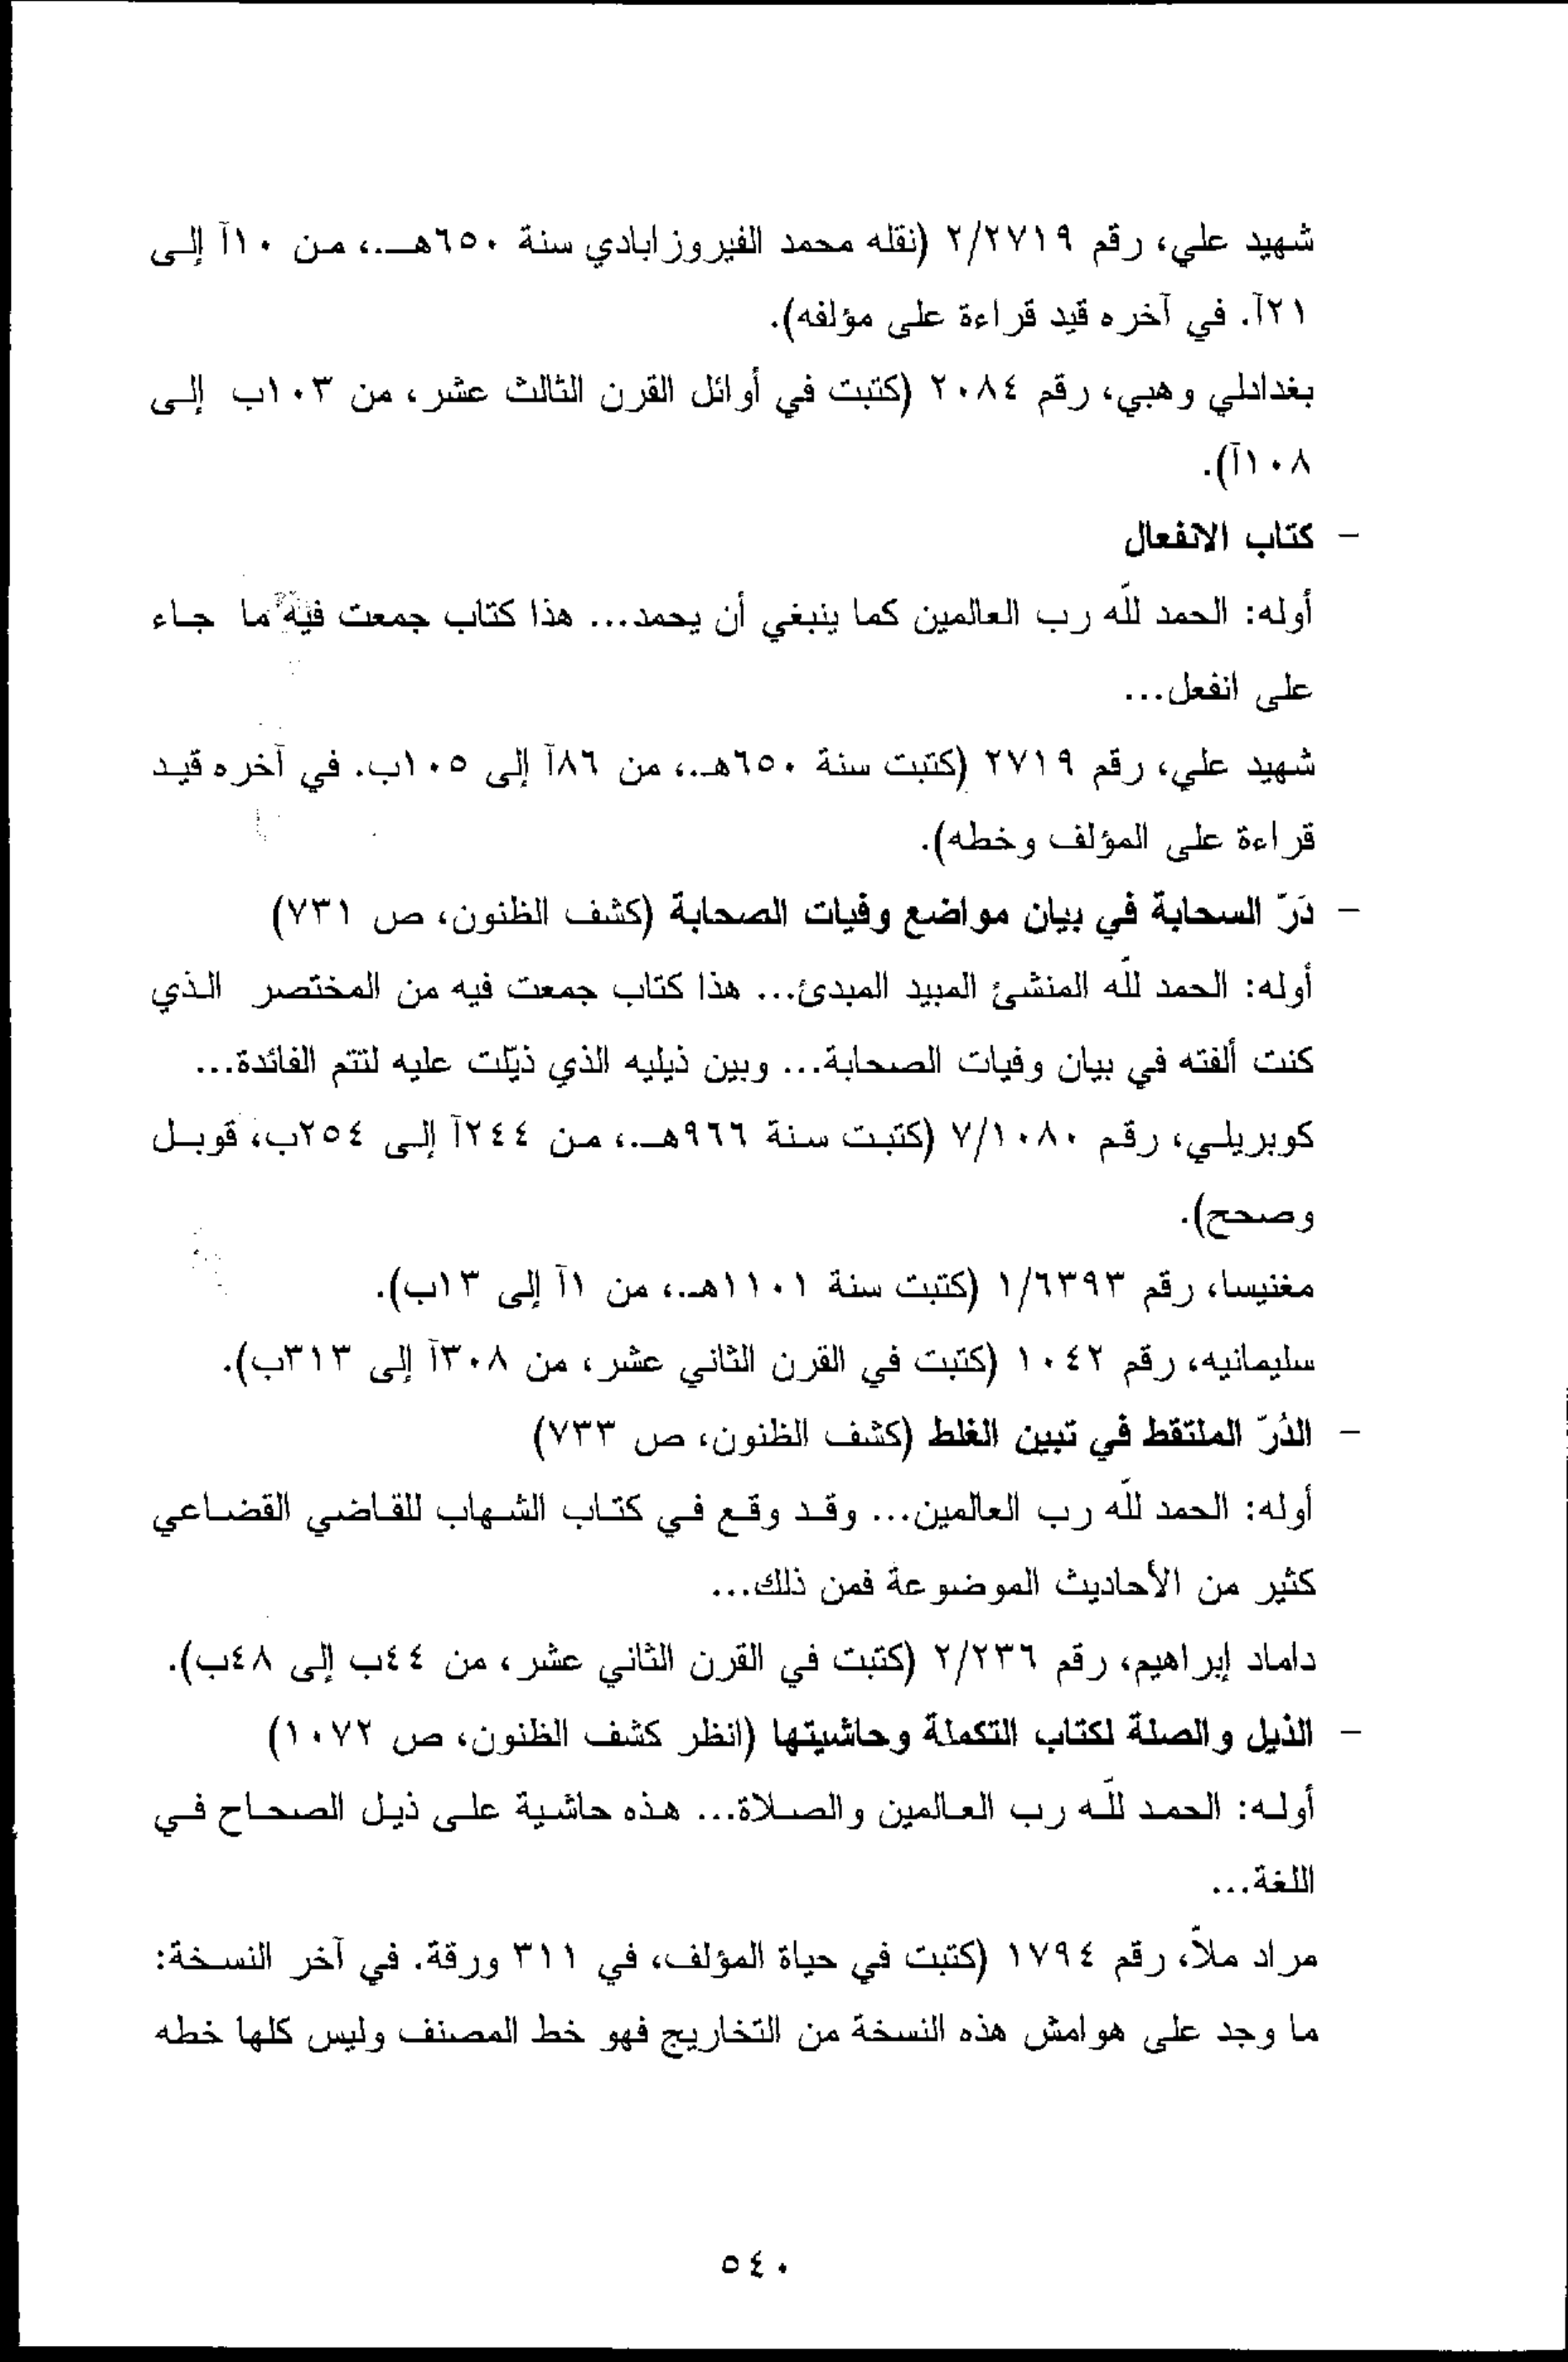 شهيد علي، رقم ٢/٢٧١٩ (نقله محمد الفيروزابادي سنة ٦٥٠هـ.، من ١٠آ إلى
٢١آ. في آخره قيد قراءة على مؤلفه).
بغدادلي وهبي، رقم ٢٠٨٤ (كتبت في أوائل القرن الثالث عشر، من ١٠٣ب إلى
١٠٨آ).
- كتاب الانفعال
أوله: الحمد لله رب العالمين كما ينبغي أن يحمد... هذا كتاب جمعت فيه ما جاء
على انفعل...
شهيد علي، رقم ٢٧١٩ (كتبت سنة ٦٥٠هـ.، من ٨٦آ إلى ١٠٥ب. في آخره قيد
قراءة على المؤلف وخطه).
- دَرّ السحابة في بيان مواضع وفيات الصحابة (كشف الظنون، ص ٧٣١)
أوله: الحمد لله المنشئ المبيد المبدئ... هذا كتاب جمعت فيه من المختصر الذي
كنت ألفته في بيان وفيات الصحابة... وبين ذيليه الذي ذيّلت عليه لتتم الفائدة...
كوبريلي، رقم ٧/١٠٨٠ (كتبت سنة ٩٦٦هـ.، من ٢٤٤آ إلى ٢٥٤ب، قوبل
وصحح).
مغنيسا، رقم ١/٦٣٩٣ (كتبت سنة ١١٠١هـ.، من ١آ إلى ١٣ب).
سليمانيه، رقم ١٠٤٢ (كتبت في القرن الثاني عشر، من ٣٠٨آ إلى ٣١٣ب).
- الدُرّ الملتقط في تبين الغلط (كشف الظنون، ص ٧٣٣)
أوله: الحمد لله رب العالمين... وقد وقع في كتاب الشهاب للقاضي القضاعي
كثير من الأحاديث الموضوعة فمن ذلك...
داماد إبراهيم، رقم ٢/٢٣٦ (كتبت في القرن الثاني عشر، من ٤٤ب إلى ٤٨ب).
- الذيل والصلة لكتاب التكملة وحاشيتها (انظر كشف الظنون، ص ١٠٧٢)
أوله: الحمد لله رب العالمين والصلاة... هذه حاشية على ذيل الصحاح في
اللغة...
مراد ملاّ، رقم ١٧٩٤ (كتبت في حياة المؤلف، في ٣١١ ورقة. في آخر النسخة:
ما وجد على هوامش هذه النسخة من التخاريج فهو خط المصنف وليس كلها خطه
٥٤٠